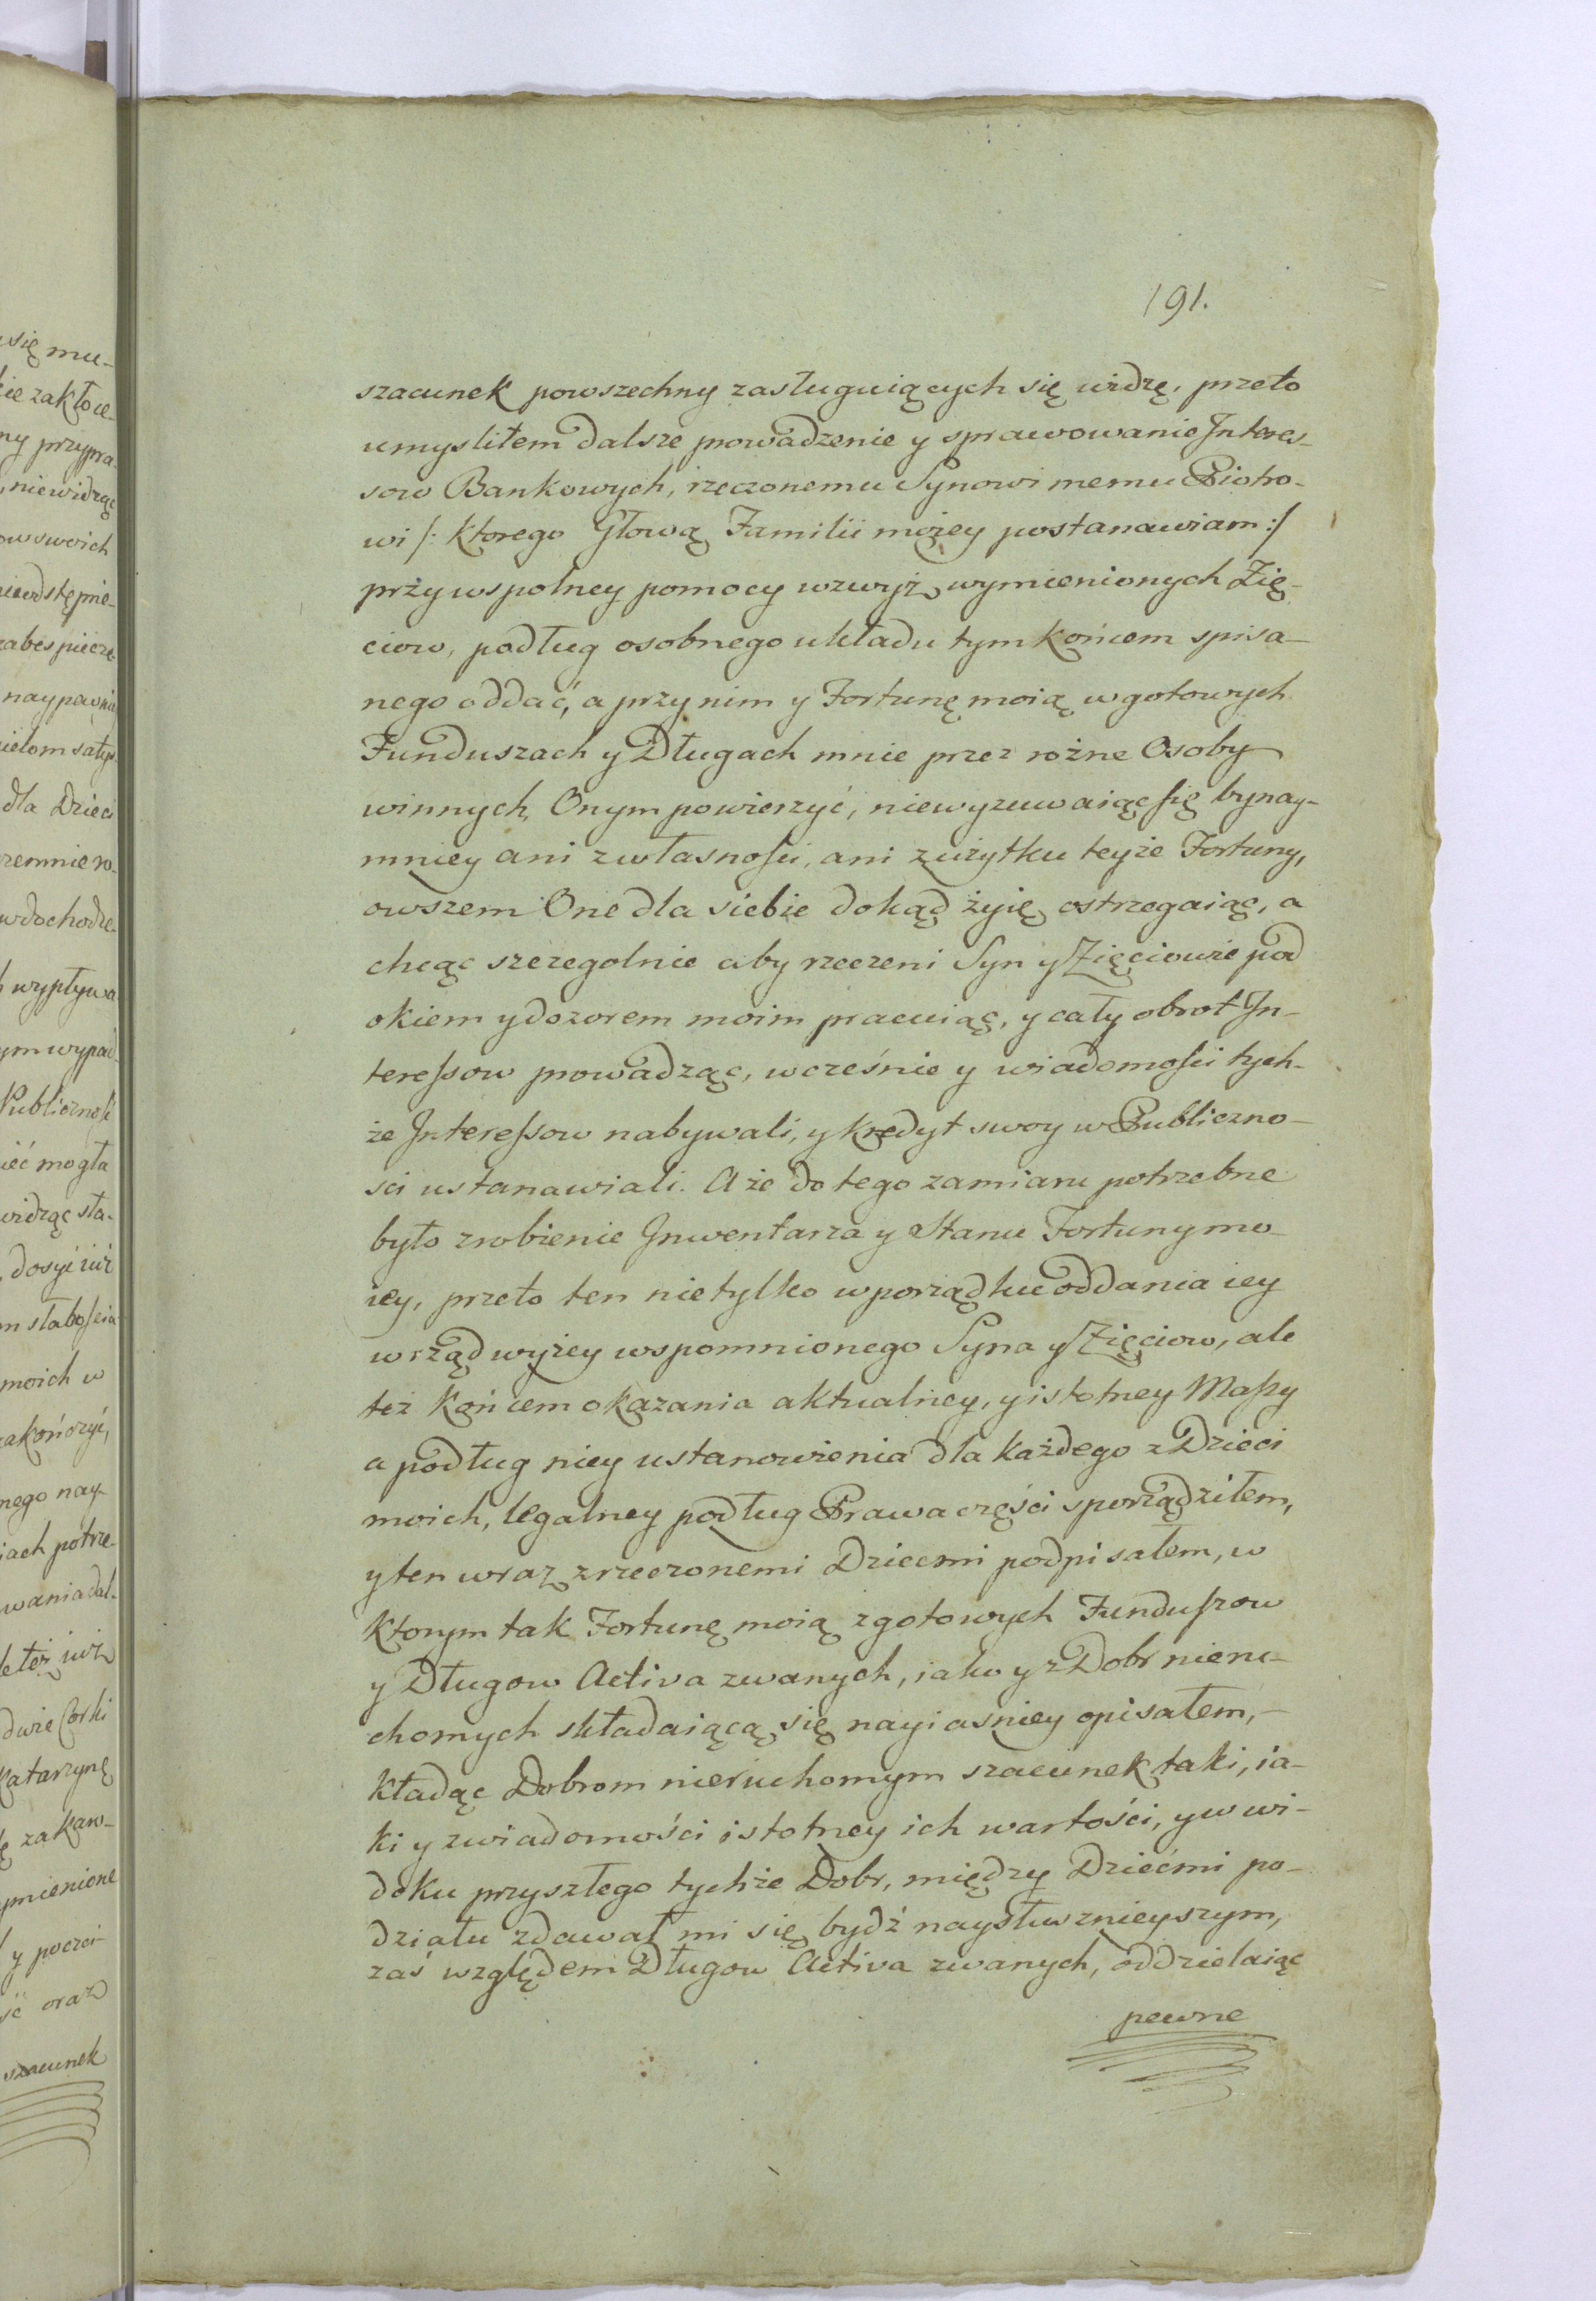 191.
szacunek powszechny zasługuiących się widzę, przeto
umysliłem dalsze prowadzenie y sprawowanie Interes-
sow Bankowych, rzeczonemu Synowi memu Piotro-
wi /: ktorego Głową Familii moiey postanawiam :/
przy wspolney pomocy wzwyż wymienionych Zię-
ciow, podług osobnego układu tym końcem spisa-
nego oddać, a przy nim y Fortunę moią w gotowych
Funduszach y Długach mnie przez rożne Osoby
winnych, Onym powierzyć, niewyzuwaiąc się bynay-
mniey ani z własności, ani z użytku teyże Fortuny,
owszem One dla siebie dokąd żyię ostrzegaiąc, a
chcąc szczegolnie aby rzeczeni Syn y Zięciowie pod
okiem y dozorem moim pracuiąc, y cały obrot In-
teressow prowadząc, wcześnie y wiadomości tych-
że Interessow nabywali, y kredyt swoy w Publiczno-
sci ustanawiali. A że do tego zamiaru potrzebne
było zrobienie Inwentarza y Stanu Fortuny mo-
iey, przeto ten nietylko w porządku oddania iey
w rząd wyżey wspomnionego Syna y Zięciow, ale
też końcem okazania aktualney, y istotney Massy
a podług niey ustanowienia dla każdego z Dzieci
moich, legalney podług Prawa części sporządziłem,
y ten wraz z rzeczonemi Dziecmi podpisałem, w
ktorym tak Fortunę moią z gotowych Funduszow
y Długow Activa zwanych, iako y z Dobr nieru-
chomych składaiącą się nayiasniey opisałem,
kładąc Dobrom nieruchomym szacunek taki, ia-
ki y z wiadomości istotney ich wartości, y w wi-
doku przyszłego tychże Dobr, między Dziećmi po-
działu zdawał mi się bydź naysłusznieyszym,
zaś względem Długow Activa zwanych, oddzielaiąc
pewne